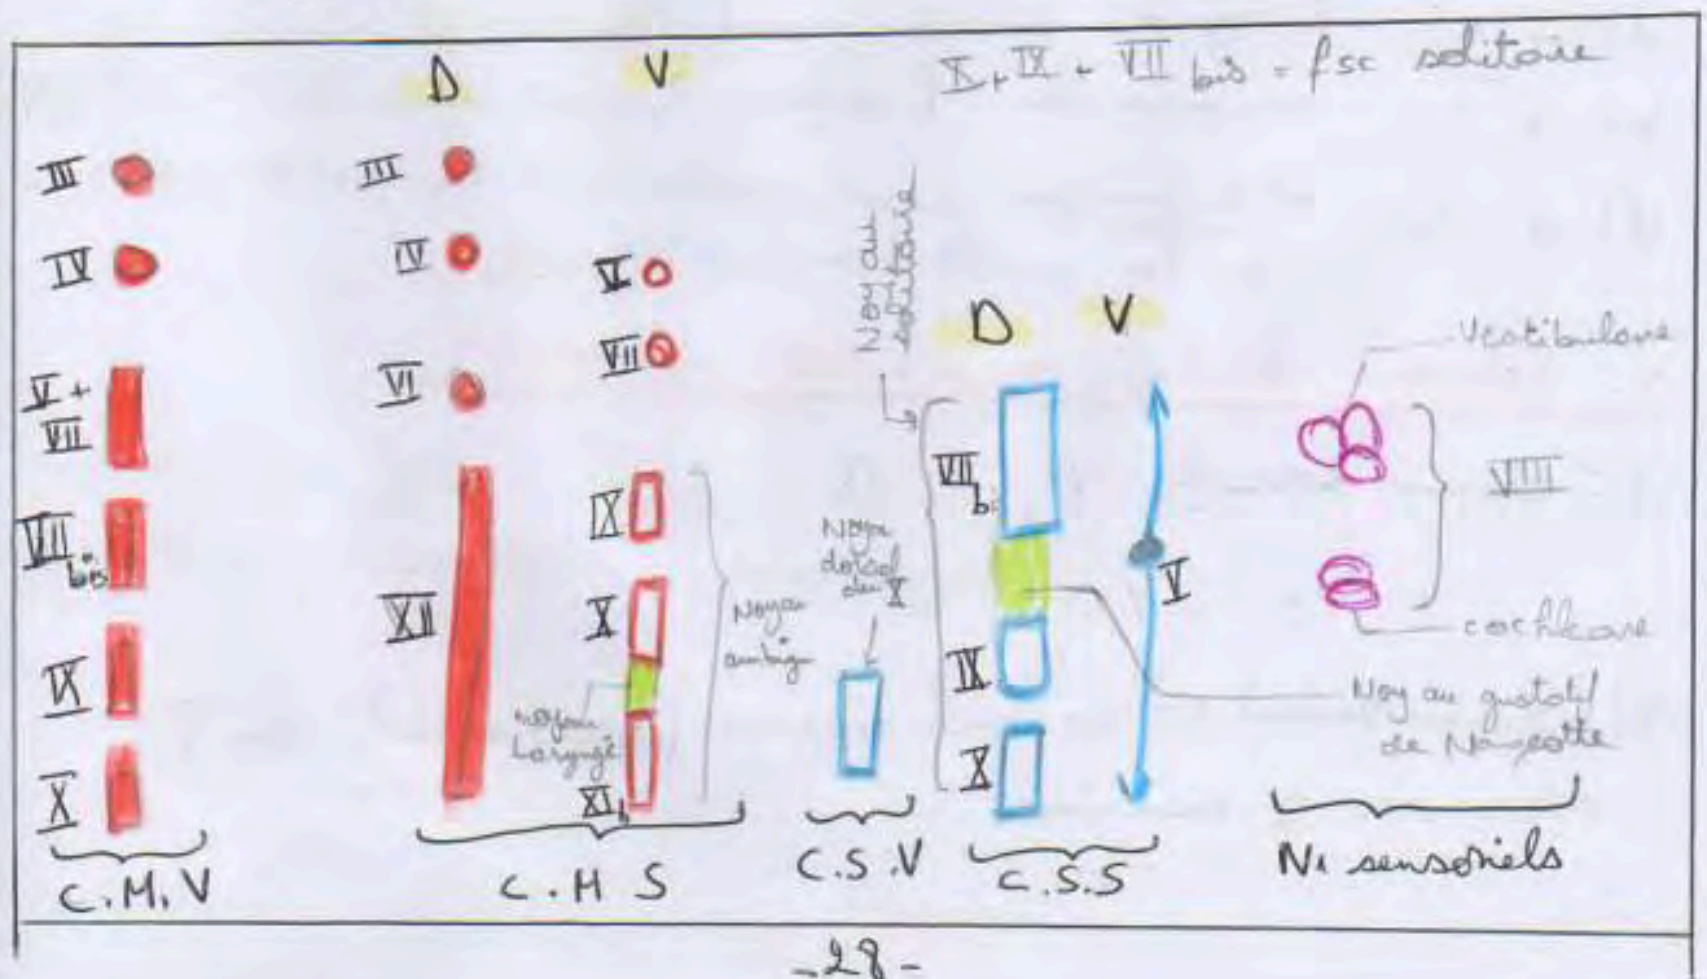 D
V
X + IX + VII bis = fsc solitaire
III
IV
V +
VII
VII
bis
IX
X
C.M.V
III
IV
VI
XII
V
VII
IX
X
XI b
Noyau
Laryngé
Noyau
ambigu
C.M S
Noyau
dorsal
du X
C.S.V
Noyau
solitaire
D
V
VII
bi
IX
X
V
C.S.S
Vestibulaire
VIII
cochléaire
Noyau gustatif
de Nageotte
Nx sensoriels
-28-